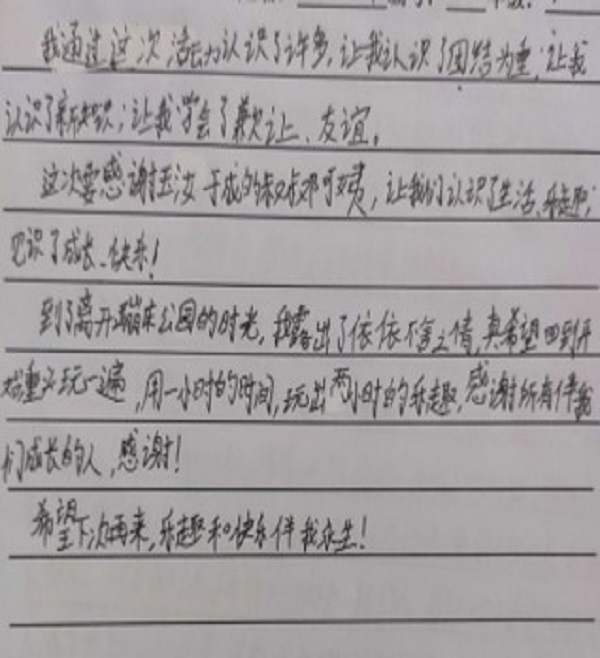 我通过这次活动认识了许多,让我认识了团结为重;让我
认识了新知识;让我学会了谦让、友谊。
这次要感谢玉汝于成的叔叔阿姨,让我们认识了生活、乐趣;
见识了成长、快乐!
到了离开蹦床公园的时光,我露出了依依不舍之情,真希望回到开
始重头玩一遍,用一小时的时间,玩出两小时的乐趣,感谢所有伴我
们成长的人,感谢!
希望下次再来,乐趣和快乐伴我永生!